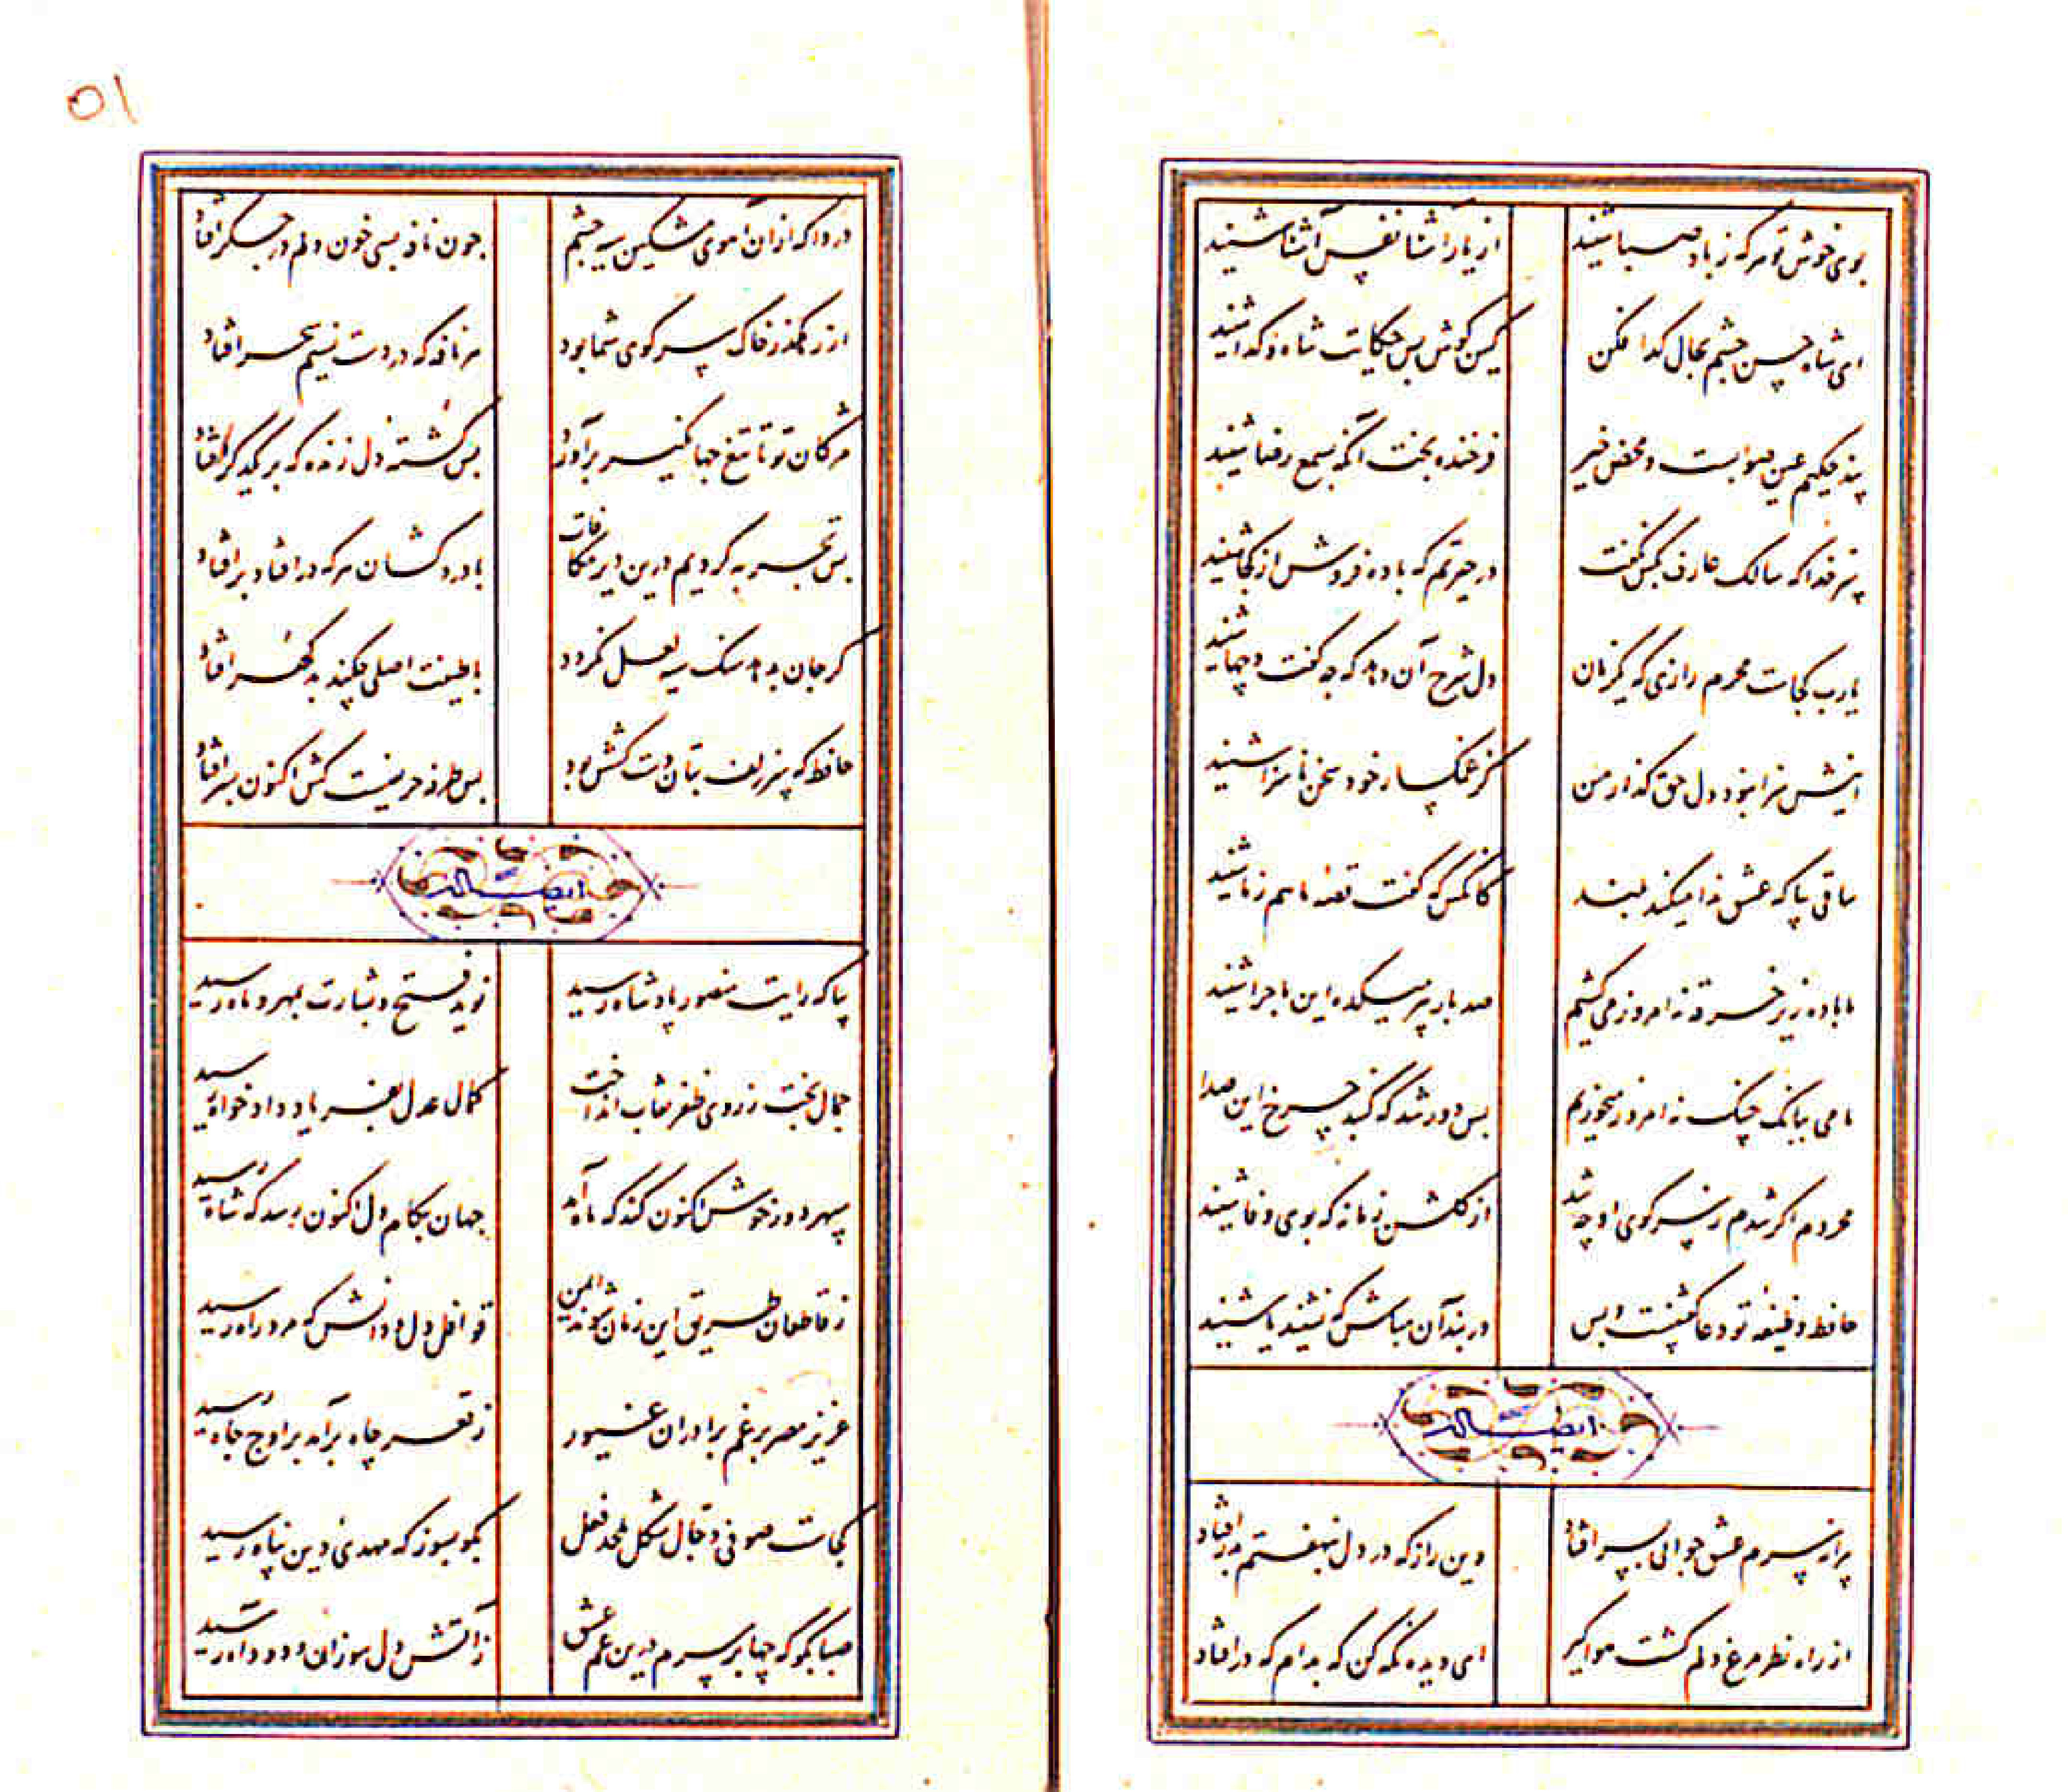 بوی خوش تو هر که ز باد صبا شنید
از یار آشنا نفس آشنا شنید
ای شاه حسن چشم بحال گدا فکن
کین گوش بس حکایت شاه و گدا شنید
پند حکیم عین صوابست و محض خیر
فرخنده بخت آنکه بسمع رضا شنید
سر خدا که سالک عارف بکس نگفت
در حیرتم که باده فروش از کجا شنید
یارب کجاست محرم رازی که یکزمان
دل شرح آن دهد که چه گفت و چها شنید
اینش سزا نبود دل حق گذار من
کز غمگسار خود سخن ناسزا شنید
ساقی بیا که عشق ندا میکند بلند
کانکس که گفت قصه ما هم ز ما شنید
ما باده زیر خرقه نه امروز می کشیم
صد بار پیر میکده این ماجرا شنید
ما می ببانک چنک نه امروز میخوریم
بس دور شد که گنبد چرخ این صدا
محروم اگر شدم ز سر کوی او چه شد
از گلشن زمانه که بوی وفا شنید
حافظ وظیفه تو دعا گفتنست و بس
در بند آن مباش که نشنید یا شنید
ایضاله
پرانه سرم عشق جوانی بسر افتاد
وین راز که در دل بنهفتم بدر افتاد
از راه نظر مرغ دلم گشت هواگیر
ای دیده نگه کن که بدام که در افتاد
۵۱
دردا که از آن آهوی مشکین سیه چشم
چون نافه بسی خون دلم در جگر افتاد
از رهگذر خاک سر کوی شما بود
هر نافه که در دست نسیم سحر افتاد
مژگان تو تا تیغ جهانگیر برآورد
بس کشته دل زنده که بر یکدگر افتاد
بس تجربه کردیم درین دیر مکافات
با درد کشان هر که در افتاد بر افتاد
گر جان بدهد سنک سیه لعل نگردد
با طینت اصلی چکند بد گهر افتاد
حافظ که سر زلف بتان دست کشش بود
بس طرفه حریفیست کش اکنون بسر افتاد
ایضاله
بیا که رایت منصور پادشاه رسید
نوید فتح و بشارت بمهر و ماه رسید
جمال بخت ز روی ظفر نقاب انداخت
کمال عدل بفریاد دادخواه رسید
سپهر دور خوش اکنون کند که ماه آمد
جهان بکام دل اکنون رسد که شاه رسید
ز قاطعان طریق این زمان شوند ایمن
قوافل دل و دانش که مرد راه رسید
عزیز مصر برغم برادران غیور
ز قعر چاه برآمد بر اوج جاه رسید
کجاست صوفی دجال شکل ملحد فعل
بگو بسوز که مهدی دین پناه رسید
صبا بگو که چها بر سرم درین غم عشق
ز آتش دل سوزان و دود آه رسید